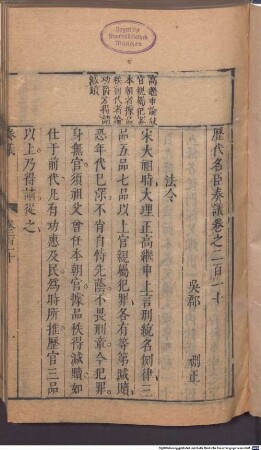 歷代名臣奏議卷之二百一十
吳郡 刪正
法令
宋太祖時大理正高繼申上言刑統名例律三
品五品七品以上官親屬犯罪各有等第減贖
恐年代已深不肖自恃先蔭不畏刑章今犯罪
身無官須祖父曾任本朝官據品秩得減贖如
仕于前代凡有功惠及民爲時所推歷官三品
以上乃得請從之
高繼申論以
官親屬犯罪
本朝者據品
秩前代者論
功爵方得請
減贖
奏議